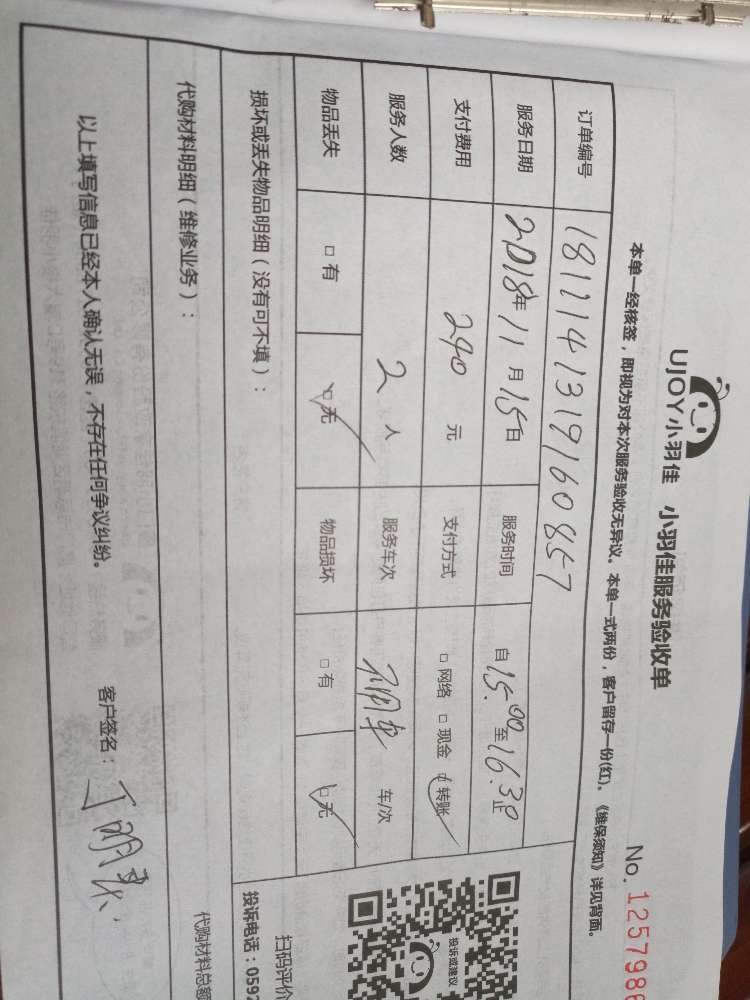 UJOY小羽佳 小羽佳服务验收单
No. 1257986
本单一经核签，即视为对本次服务验收无异议。本单一式两份，客户留存一份(红)。《维保须知》详见背面。
订单编号 1811141319160857
服务日期 2018年11月15日 服务时间 自15:00至16:30止
支付费用 290元 支付方式 □网络 □现金 ☑转账
服务人数 2人 服务车次 车/次
物品丢失 □有 ☑无 物品损坏 □有 ☑无
损坏或丢失物品明细（没有可不填）：
代购材料明细（维修业务）：
代购材料总额
以上填写信息已经本人确认无误，不存在任何争议纠纷。 客户签名：
投诉或建议
扫码评价
投诉电话：0592